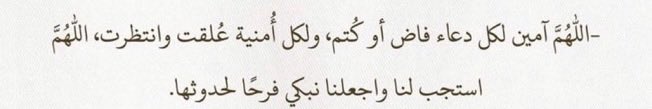 -اللّٰهُمَّ آمين لكل دعاء فاض أو كُتم، ولكل أُمنية عُلقت وانتظرت، اللّٰهُمَّ
استجب لنا واجعلنا نبكي فرحًا لحدوثها.